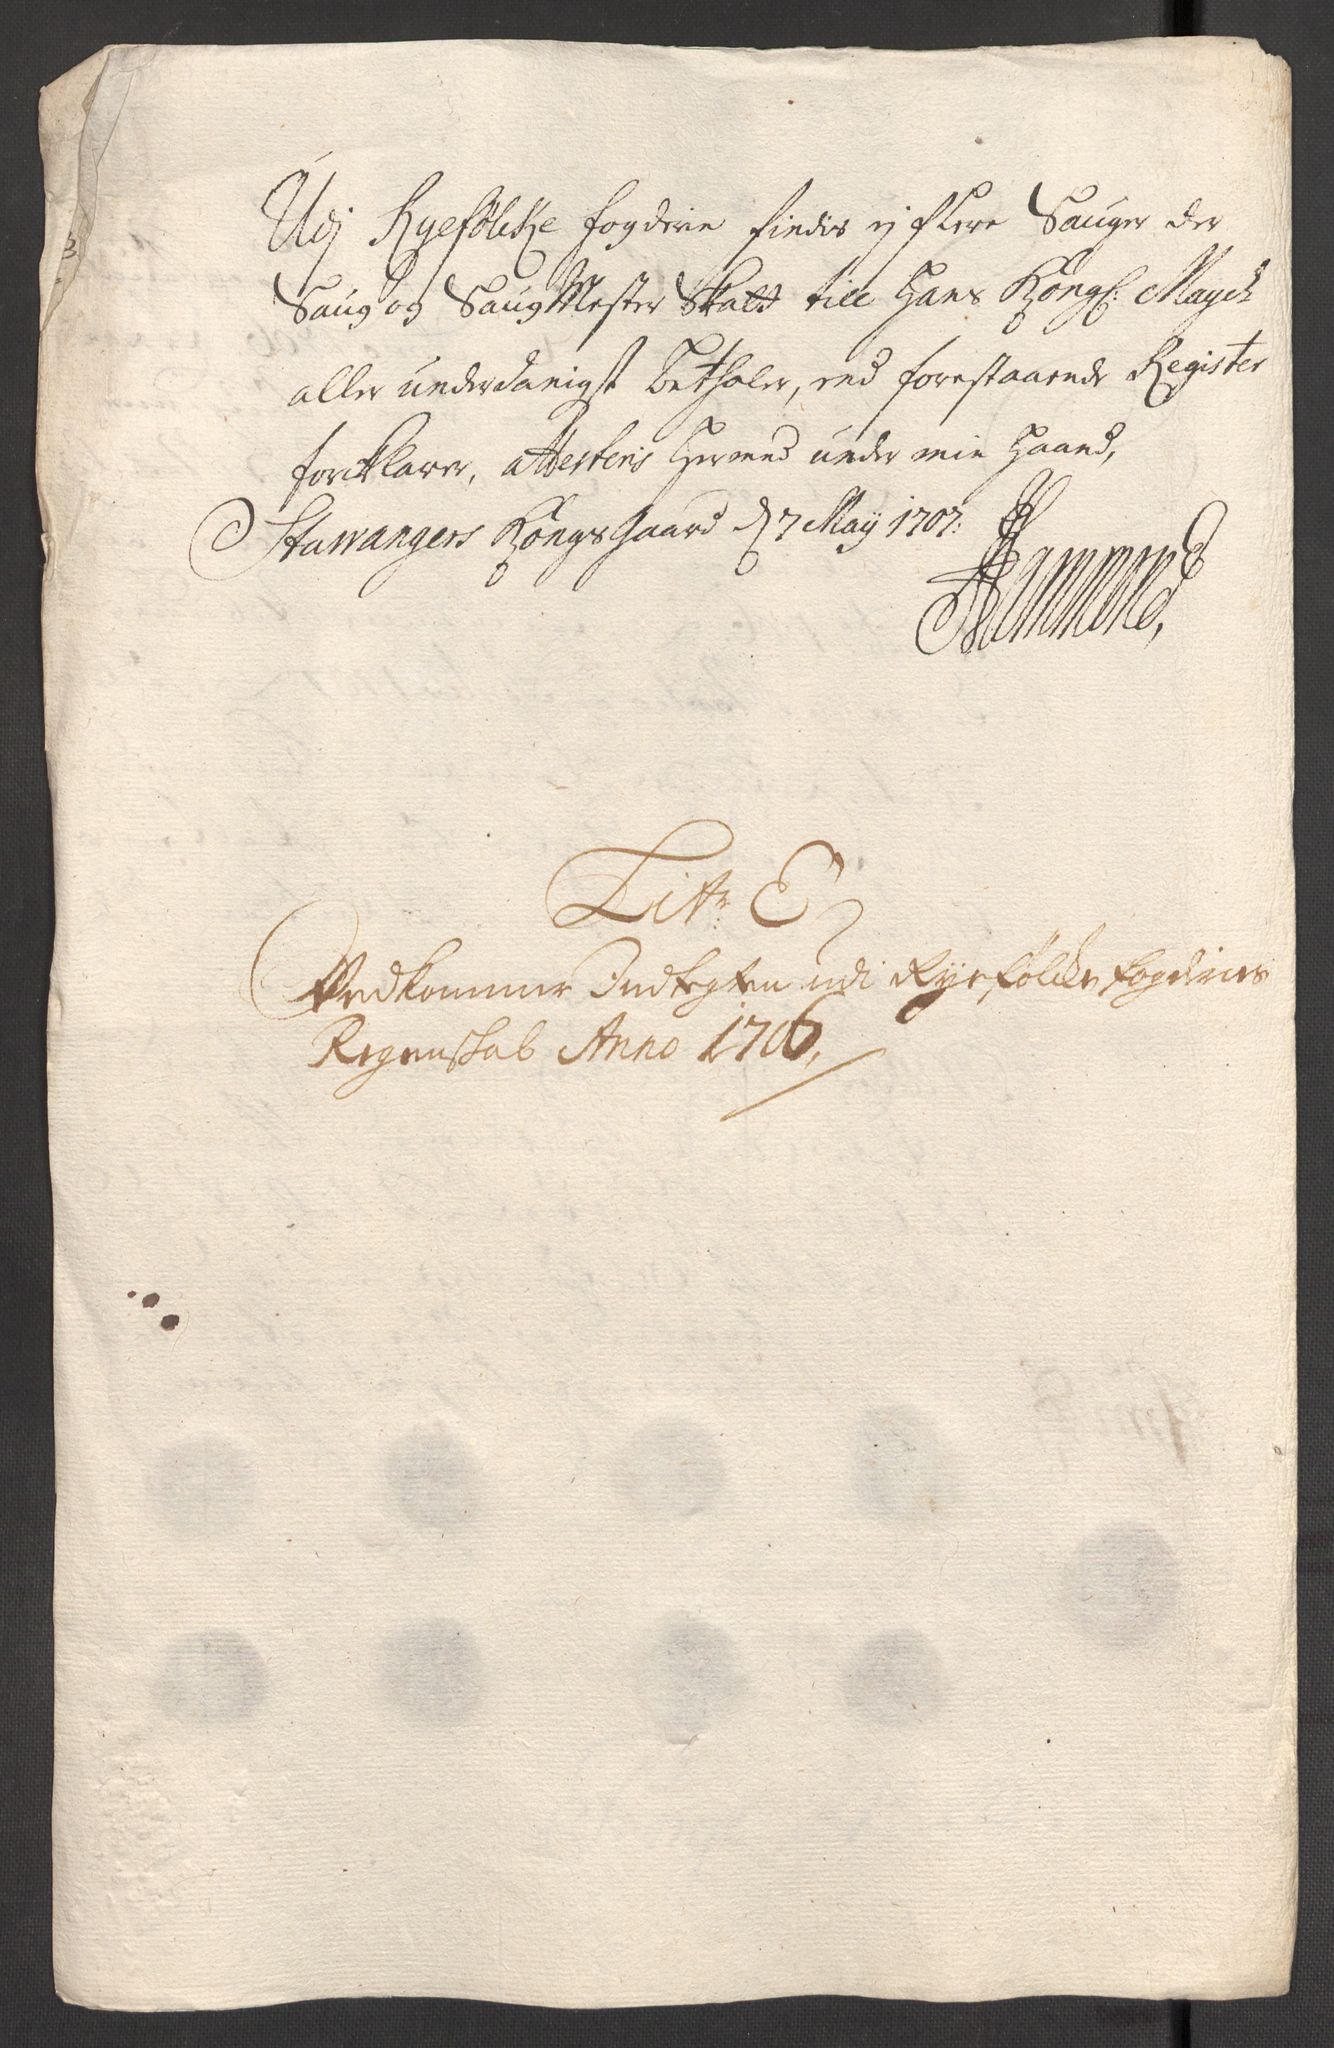 Udj Ryefölcke fogderie findis ej flere Sauger der
Saug og SaugMester Skatt till Hans Kongl: Mayst
aller underdanigst betaler, end forestaaende Register
forklarer, attesteris hermed under min Haand,
Stawangers KongsGaard d 7 Maij 1707:
Hammond,
Litr: E
Vedkommer Indtegten udi Ryefölcke fogderies
Regenskab Anno 1706,